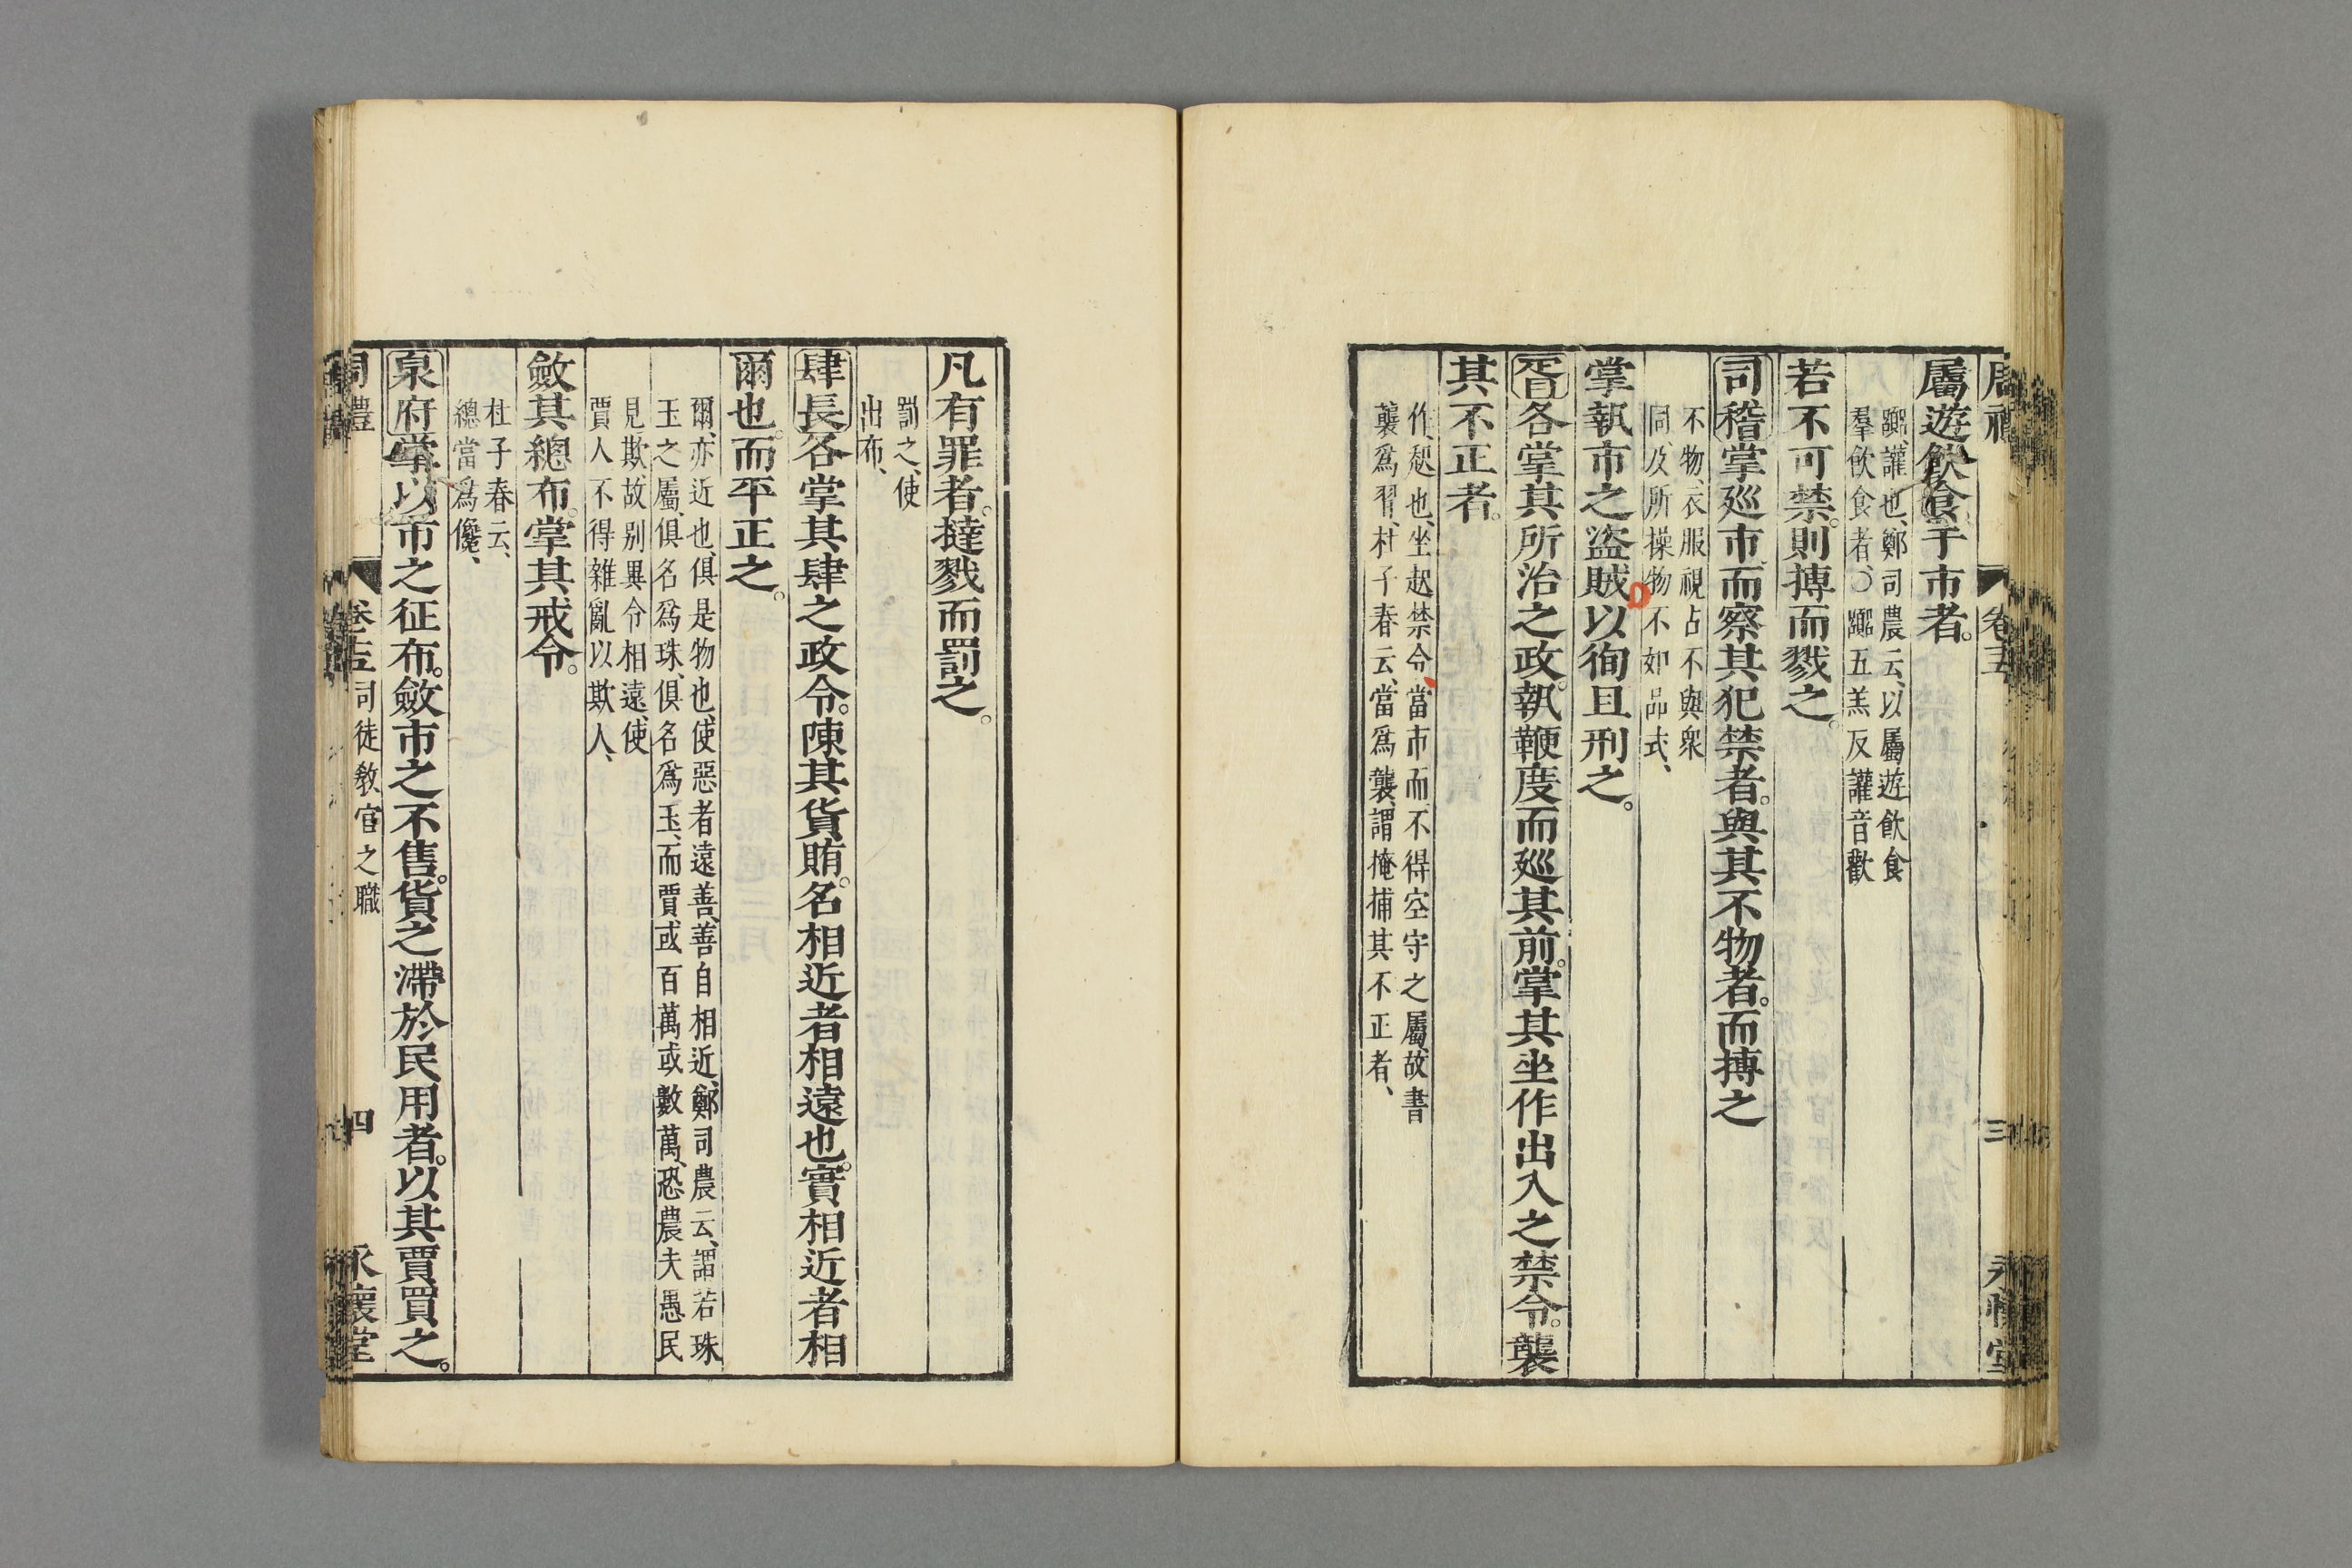 周禮
卷十五
三
永懷堂
屬遊飲食于市者。
躝讙也、鄭司農云、以屬遊飲食
羣飲食者、○躝五羔反讙音歡
若不可禁。則搏而戮之。
司稽掌廵市。而察其犯禁者。與其不物者。而搏之
不物、衣服視占不與衆
同、及所操物不如品式、
掌執市之盜賊以徇且刑之。
胥各掌其所治之政。執鞭度而廵其前。掌其坐作出入之禁令。襲
其不正者。
作、起也、坐起禁令、當市而不得空守之屬、故書
襲爲習、杜子春云、當爲襲、謂掩捕其不正者、
凡有罪者。撻戮而罰之。
罰之、使
出布、
肆長各掌其肆之政令。陳其貨賄。名相近者相遠也。實相近者相
爾也。而平正之。
爾、亦近也、俱是物也、使惡者遠善、善自相近、鄭司農云、謂若珠
玉之屬、俱名爲珠、俱名爲玉、而賈或百萬或數萬、恐農夫愚民
見欺、故别異令相遠、使
賈人不得雜亂以欺人、
斂其總布。掌其戒令。
杜子春云、
總當爲儳、
泉府掌以市之征布。斂市之不售。貨之滯於民用者。以其賈買之。
周禮
卷十五
司徒敎官之職
四
永懷堂